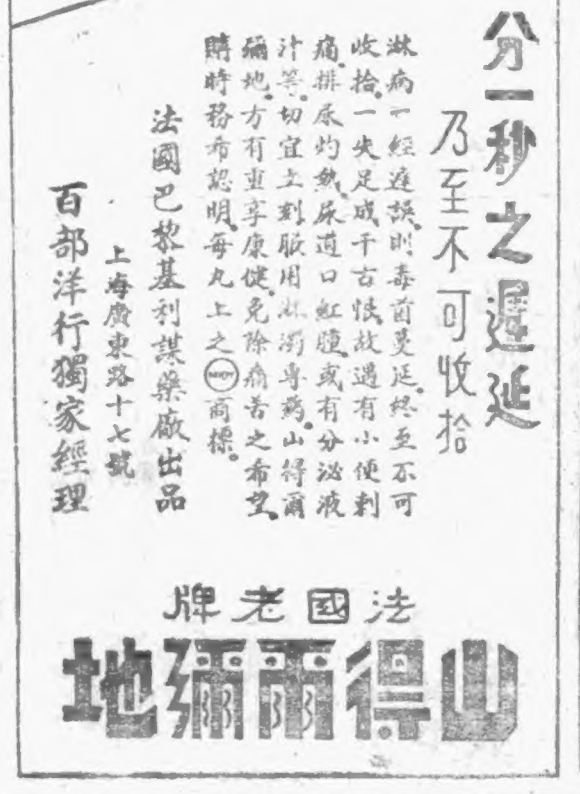 分一秒之遲延
乃至不可收拾
淋病一經遲誤。則毒菌蔓延。終至不可
收拾。一失足成千古恨。故遇有小便刺
痛。排尿灼熱。尿道口紅腫。或有分泌液
汁等。切宜立刻服用淋濁專藥。山得爾
彌地。方有重享康健。免除痛苦之希望。
購時務希認明。每丸上之MIDY商標。
法國巴黎基利謀藥廠出品
上海廣東路十七號
百部洋行獨家經理
法國老牌
山得爾彌地